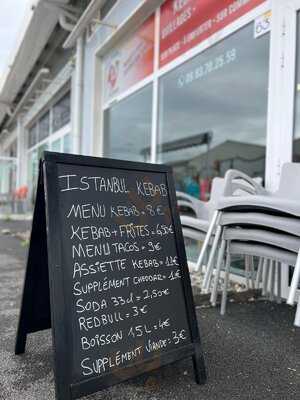 GRILLADES
SUR PLACE - À EMPORTER - SUR COMMANDE
63
ISTANBUL KEBAB
MENU KEBAB = 8€
KEBAB + FRITES = 6,50€
MENU TACOS = 9€
ASSIETTE KEBAB = 11€
SUPPLÉMENT CHEDDAR = 1€
SODA 33cl = 2,50€
REDBULL = 3€
BOISSON 1.5L = 4€
SUPPLÉMENT VIANDE = 3€